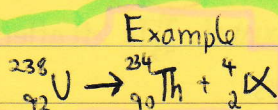 Example
²³⁸₉₂U → ²³⁴₉₀Th + ⁴₂α